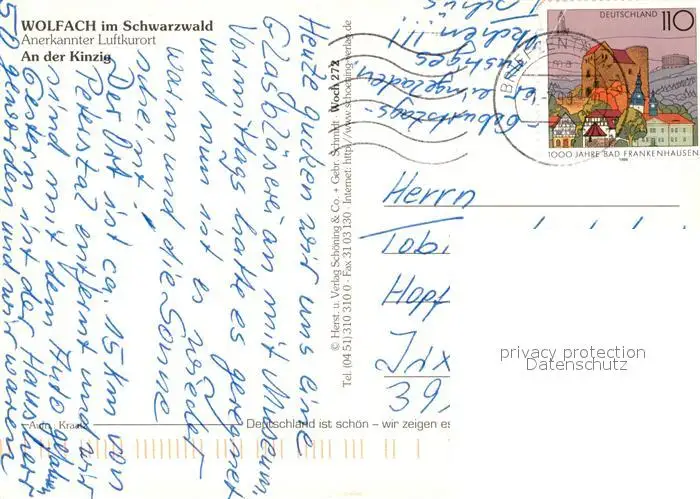 WOLFACH im Schwarzwald
Anerkannter Luftkurort
An der Kinzig
Heute gucken wir uns eine
Glasbläserei an mit Museum.
Vormittags hatte es geregnet
und nun ist es wieder
warm und die Sonne
scheint.
Der Ort ist ca. 15 km von
entfernt und wir
sind mit dem Auto gefahren
Gestern ist der Hausherr
50 geworden und wir waren
Geburtstags-
eingeladen
lustiges
!!!
Tschüs
© Herst. u. Verlag Schöning & Co. + Gebr. Schmidt · Woch 272
Tel. (04 51) 310 310 0 · Fax 31 03 130 · Internet: http://www.schoening-verlag.de
DEUTSCHLAND 110
1000 JAHRE BAD FRANKENHAUSEN
1998
Herrn
Tobi
Hopf
39
privacy protection
Datenschutz
Deutschland ist schön – wir zeigen es